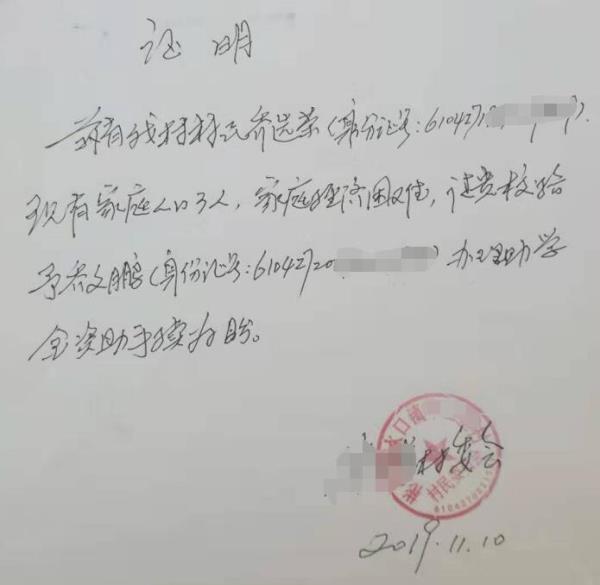 证 明
兹有我村村民乔选荣(身份证号:6104271
现有家庭人口3人,家庭经济困难,请贵校给
予乔文鹏(身份证号:61042720 )办理助学
金资助手续为盼。
水口镇
村委会
村民委
2019.11.10